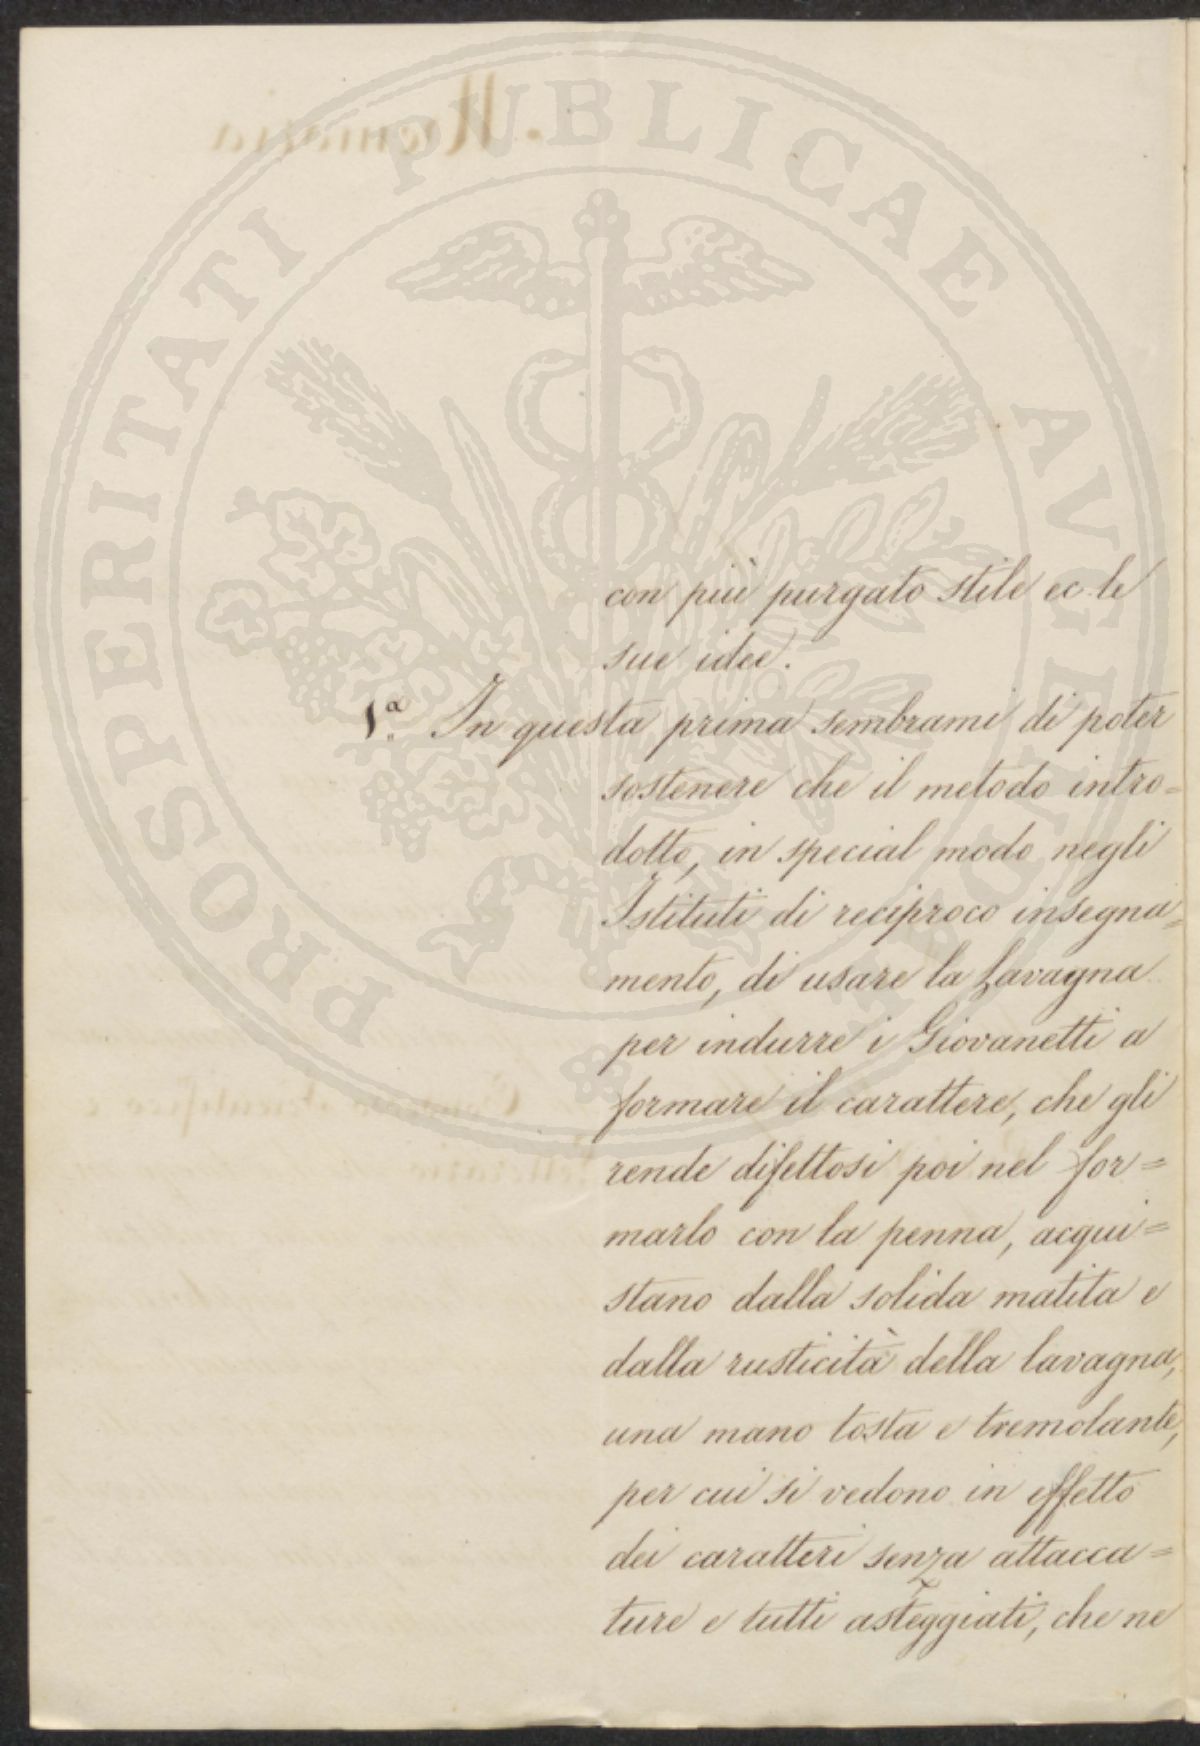 PROSPERITATI PUBLICAE AVGENDAE
con più purgato stile ec. le
sue idee.
1.ª In questa prima sembrami di poter
sostenere che il metodo intro=
dotto, in special modo negli
Istituti di reciproco insegna=
mento, di usare la Lavagna
per indurre i Giovanetti a
formare il carattere, che gli
rende difettosi poi nel for=
marlo con la penna, acqui=
stano dalla solida matita e
dalla rusticità della lavagna,
una mano tosta e tremolante,
per cui si vedono in effetto
dei caratteri senza attacca=
ture e tutti asteggiati, che ne